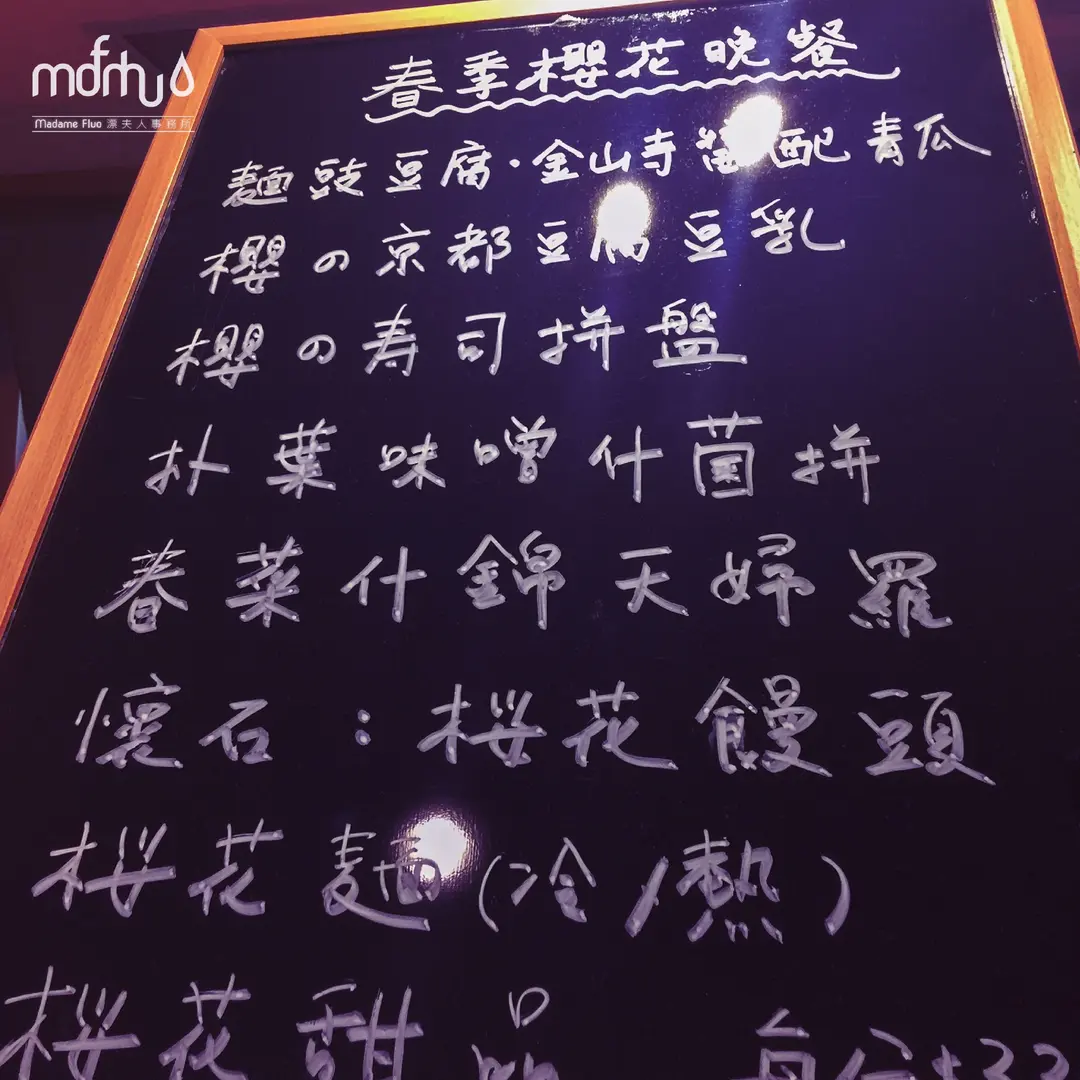 mdfmuo
Madame Fluo 漂夫人事務所
春季櫻花晚餐
麵豉豆腐·金山寺醬配青瓜
櫻の京都豆腐豆乳
櫻の寿司拼盤
朴葉味噌什菌拼
春菜什錦天婦羅
懷石：桜花饅頭
桜花麵(冷/熱)
桜花甜品 每位